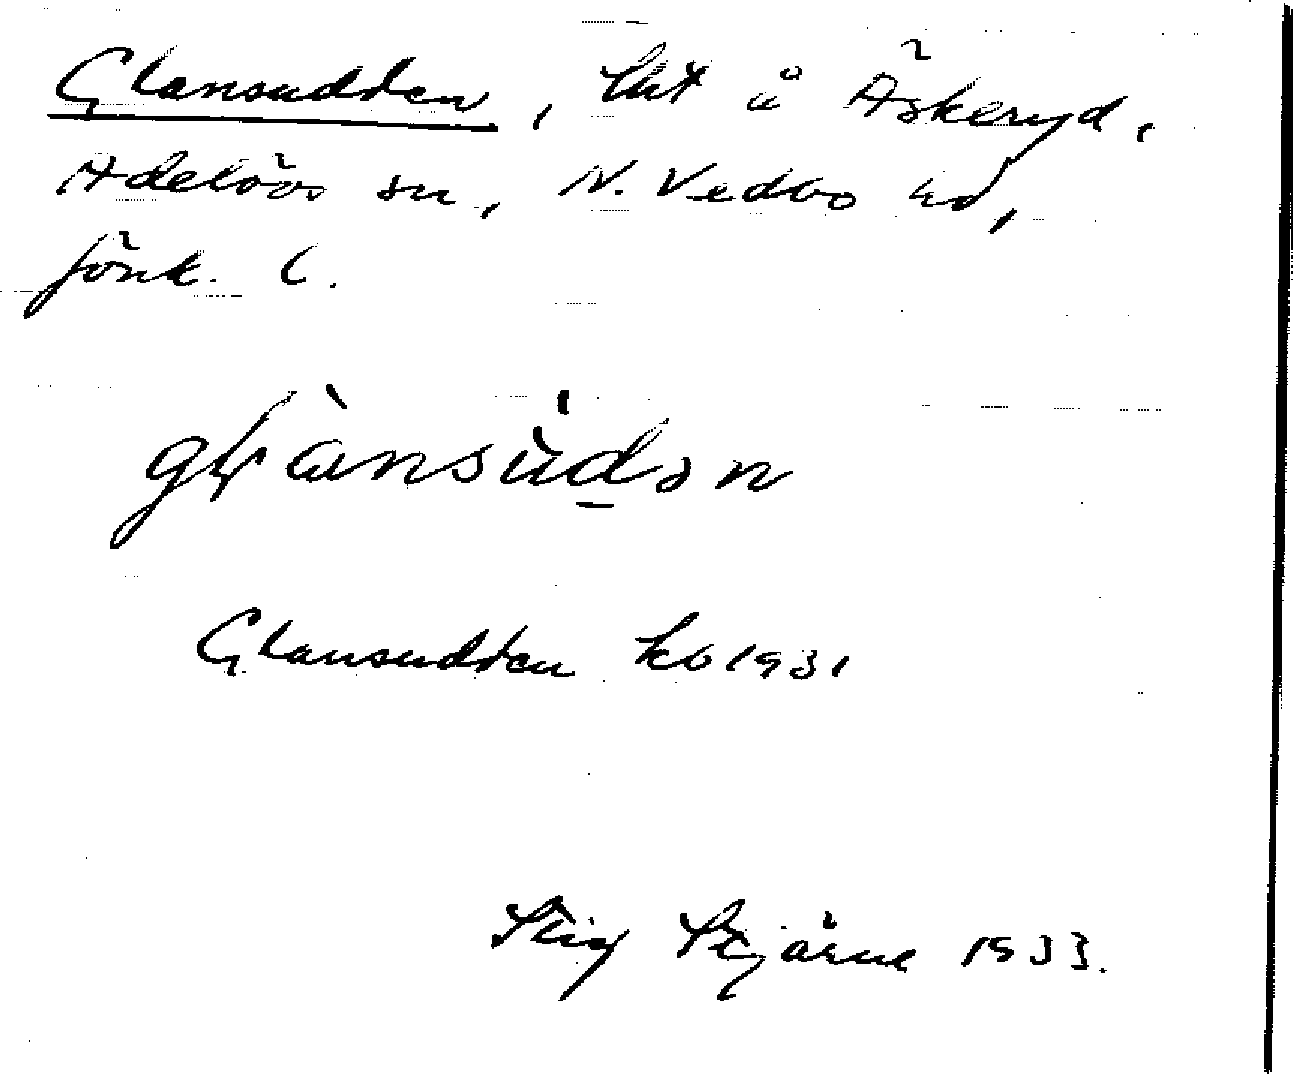 Glansudden, lht å Äskeryd,
Adelövs sn, N. Vedbo hd,
Jönk. l.
gɫànsùdən
Glansudden kb 1931
Stig Stjärne 1933.